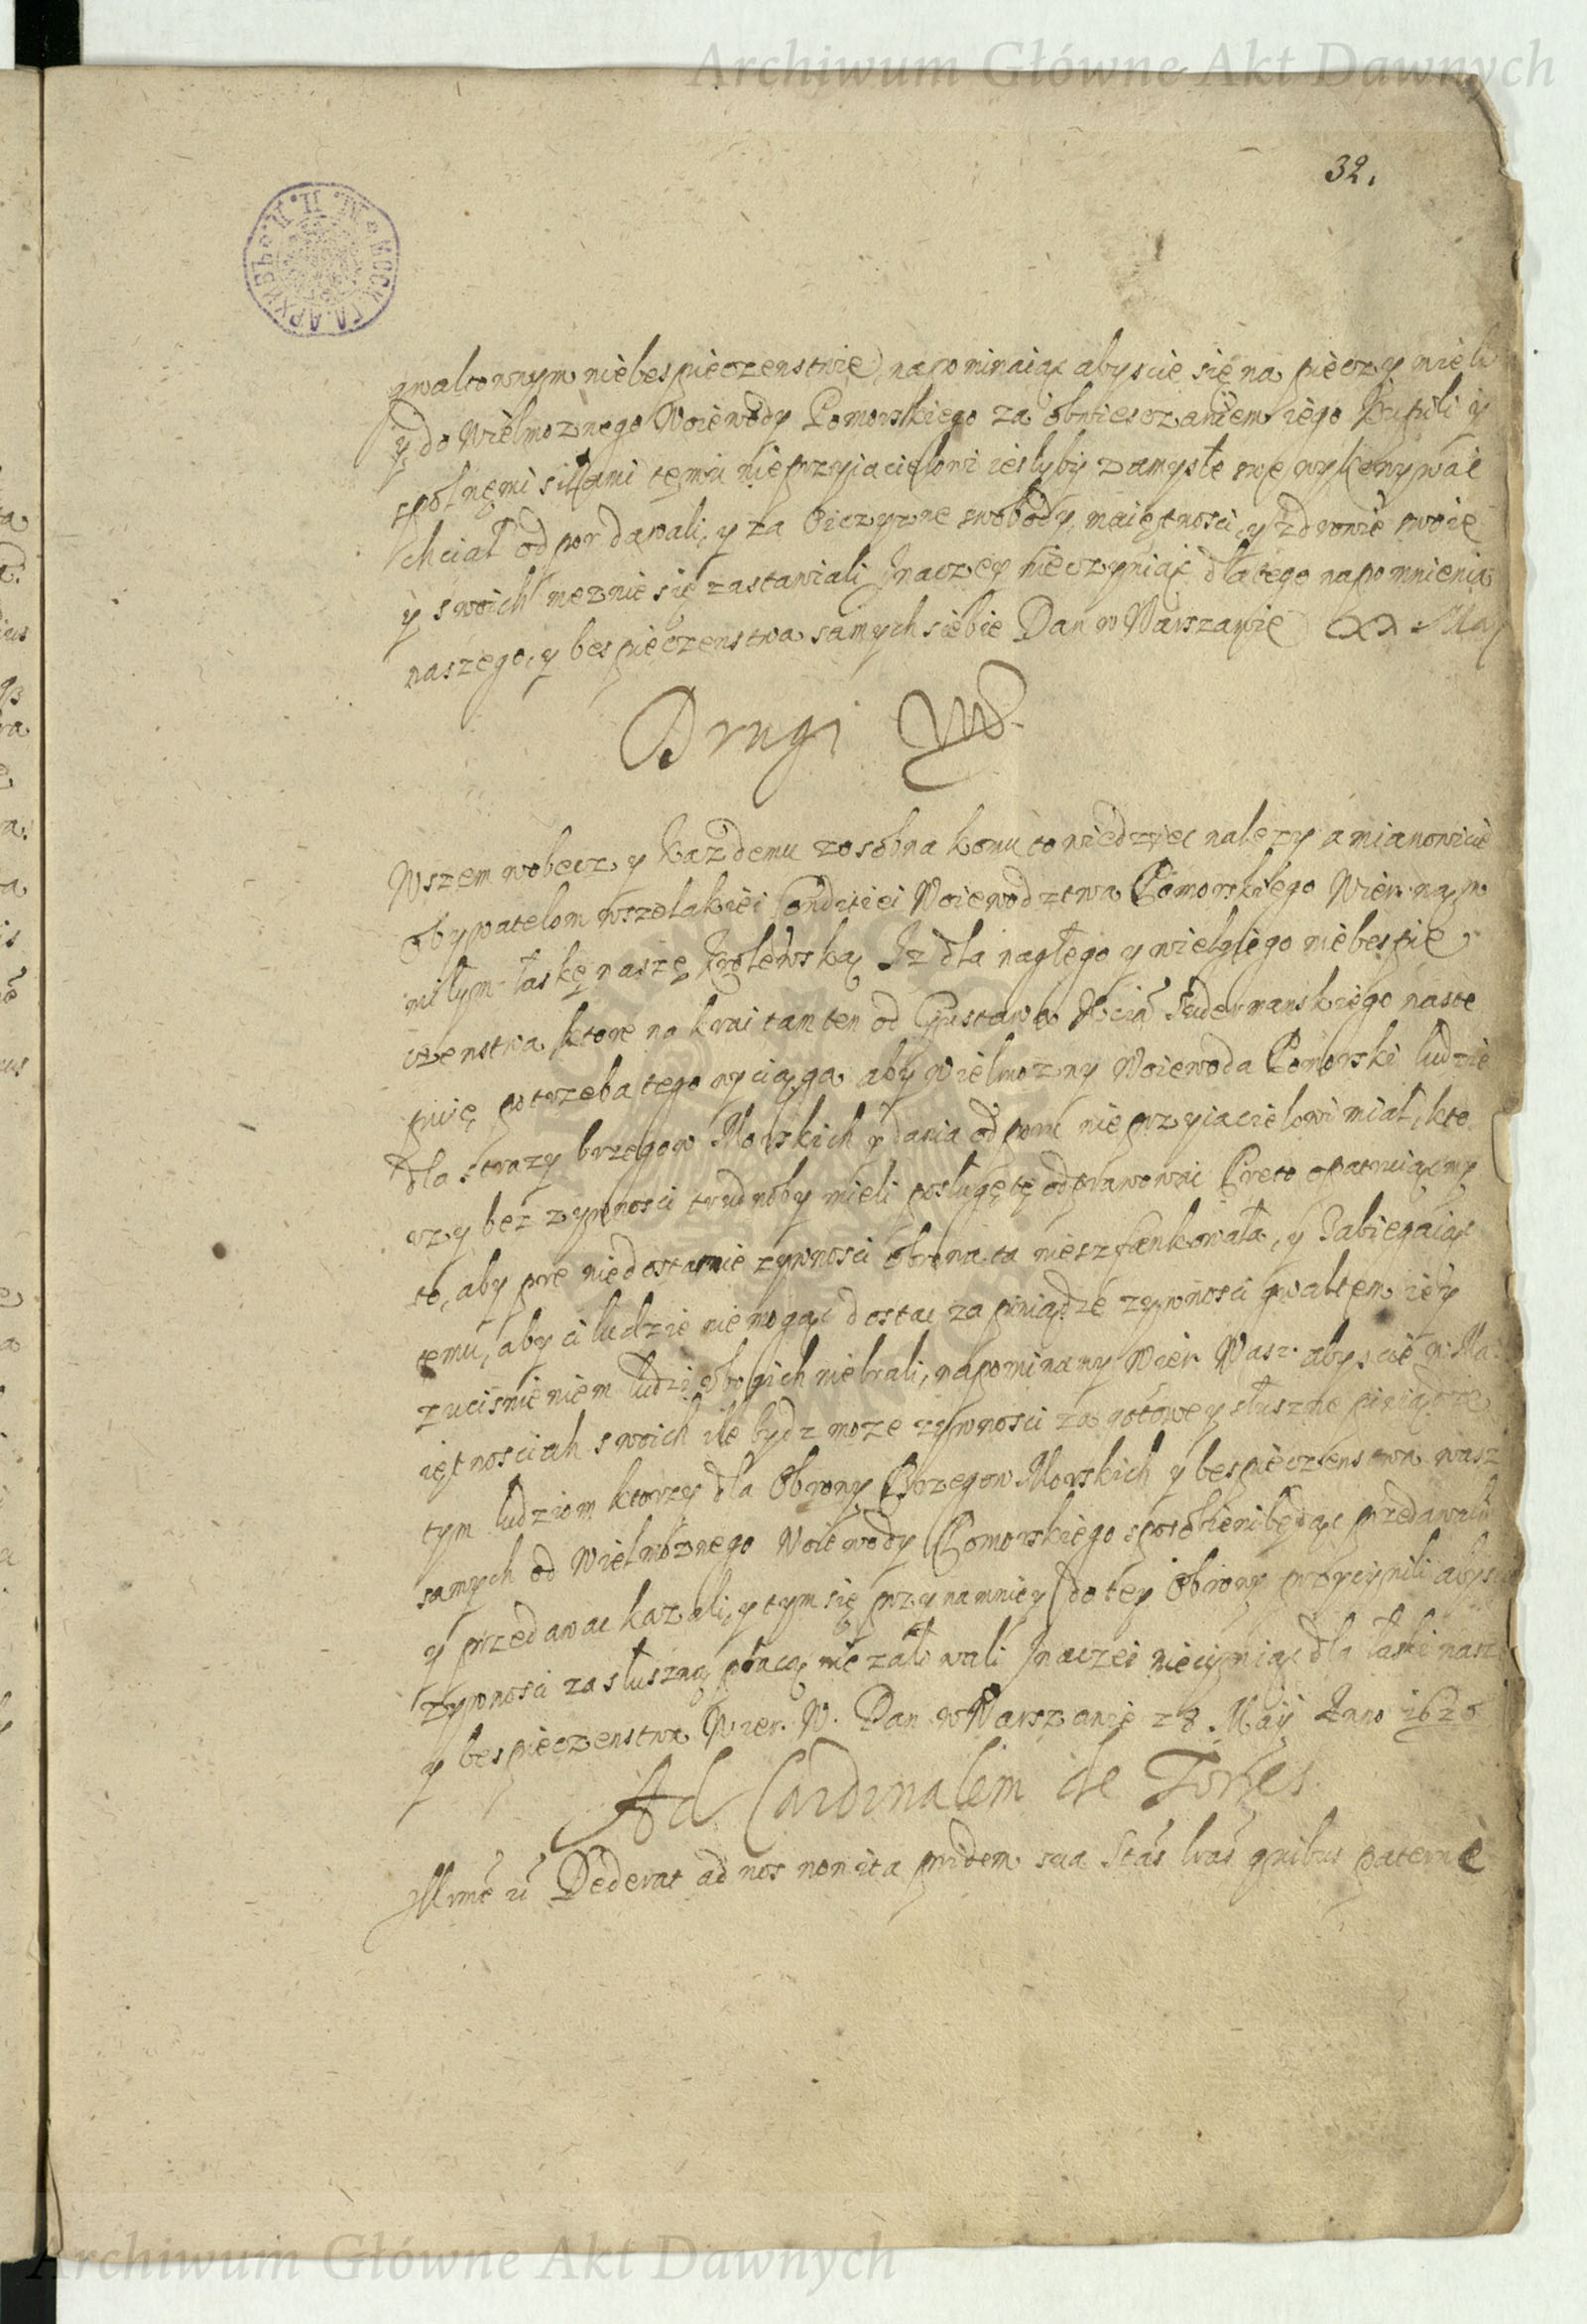 Archiwum Główne Akt Dawnych
32.
gwaltownym niebespieczenstwie, napominaiąc abyscie się na pieczy mieli
y do Wielmoznego Woiewody Pomorskiego za obwieszczaniem iego kupili y
spolnemi siłami temu nieprzyiacielowi iesliby zamysłe swe wykonywać
chciał odpor dawali, y za Oiczyzne swobody, maiętnosci, y zdrowie swoie
y swoich męznie się zastawiali Inaczey nieczyniąc dla tego napomnienia
naszego, y bespieczenstwa samych siebie Dan w Warszawie XX May
Drugi
Wszem wobecz y kazdemu zosobna komu to wiedziec nalezy a mianowicie
obywatelom wszelakiei Conditiei Woiewodztwa Pomorskiego Wier. nam
miłym łaskę naszę krolewską Iz dla nagłego y wielgiego niebespie
czenstwa ktore na krai tamten od Gustawa Xcia Sudermanskiego naste
puie potrzeba tego wyciąga aby Wielmozny Woiewoda Pomorski ludzie
dla strazy brzegow Morskich y dania odporu nieprzyiacielowi miał, kto
rzy bez zywnosci trudnoby mieli posługę tę odprawować Przeto opatruiąc my
to, aby pre niedostatnie zywnosci obrona ta nieszfankowała, y Zabiegaiąc
temu, aby ci ludzie niemogąc dostac za piniądze zywnosci gwałtem iey
z ucisnieniem ludzi ubogich niebrali, napominamy Wier. Wasz. abyscie w Ma
iętnosciach swoich ile bydz moze zywnosci za gotowe y słuszne piniądze
tym ludziom ktorzy dla Obrony Brzegow Morskich y bespieczenstwa wasz
samych od Wielmoznego Woiewody Pomorskiego sposobieni będąc przedawali
y przedawac kazali, y tym się przynamniey do tey Obrony przyczynili abyscie
zywnosci za słuszną płacą nie załowali Inaczei nieczyniąc dla łaski nasz
y bespieczenstwa Wier. W. Dan w Warszawie 28 May Anno 1626
Ad Cardinalem de Torres
Illrme Dederat ad nos non ita pridem sua Stas lras quibus paterne
Archiwum Główne Akt Dawnych